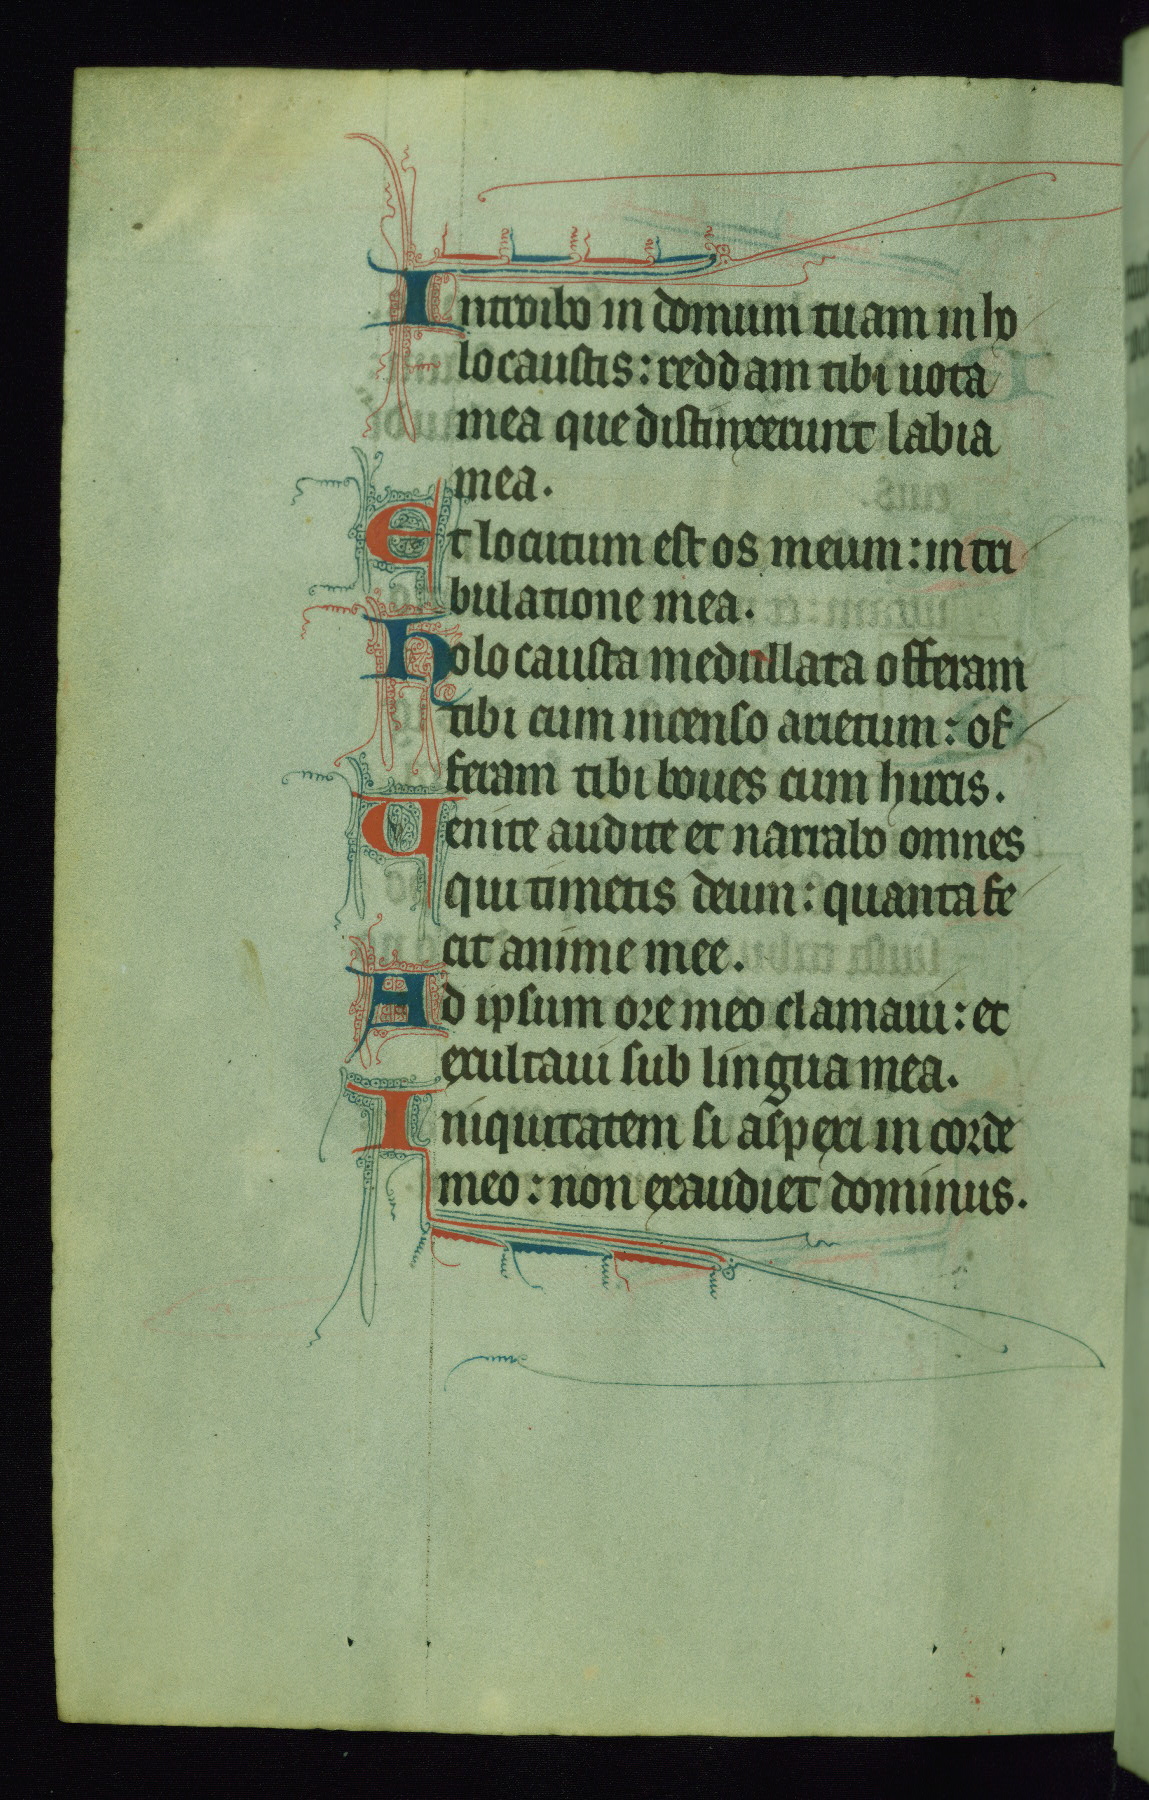 Introibo in domum tuam in ho
locaustis: reddam tibi uota
mea que distinxerunt labia
mea.
Et locutum est os meum: in tri
bulatione mea.
holocausta medullata offeram
tibi cum incenso arietum: of
feram tibi boues cum hircis.
Uenite audite et narrabo omnes
qui timetis deum: quanta fe
cit anime mee.
Ad ipsum ore meo clamaui: et
exultaui sub lingua mea.
Iniquitatem si aspexi in corde
meo: non exaudiet dominus.